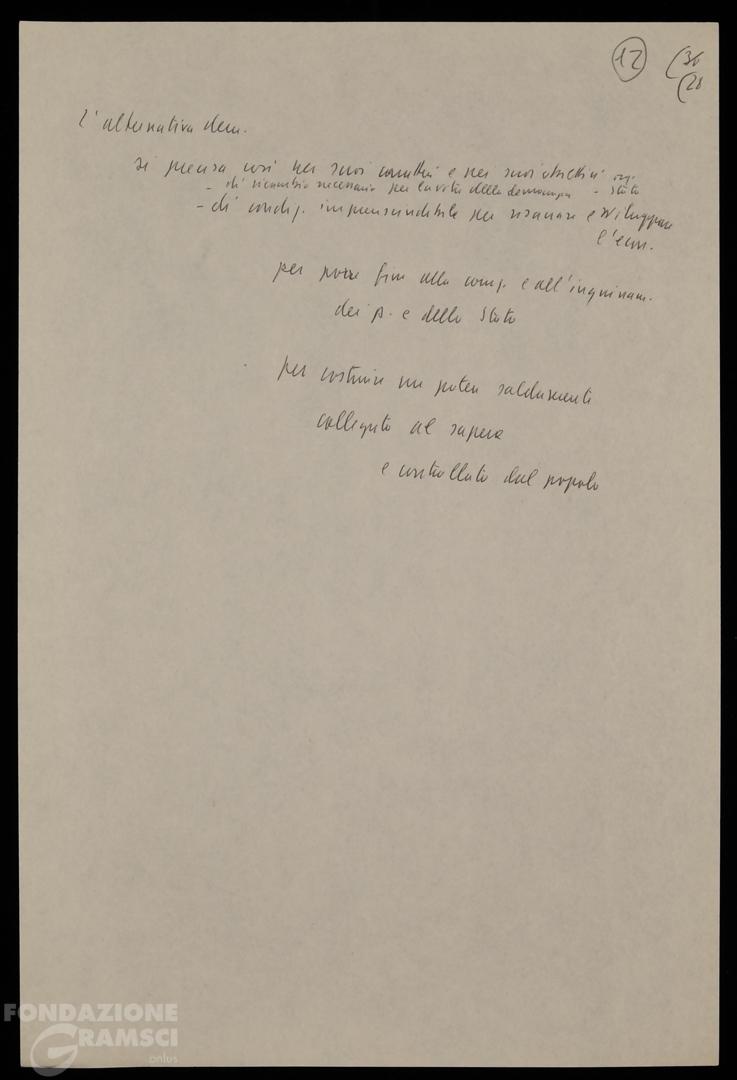 12 (36
(28
l'alternativa dem.
si precisa così nei suoi caratteri e nei suoi obiettivi
- di ricambio necessario per la vita della democrazia - Stato
- di condiz. imprescindibile per risanare e sviluppare
l'econ.
per porre fine alla corruz. e all'inquinam.
dei p. e dello Stato
per costruire un potere saldamente
collegato al sapere
e controllato dal popolo
FONDAZIONE
GRAMSCI
onlus